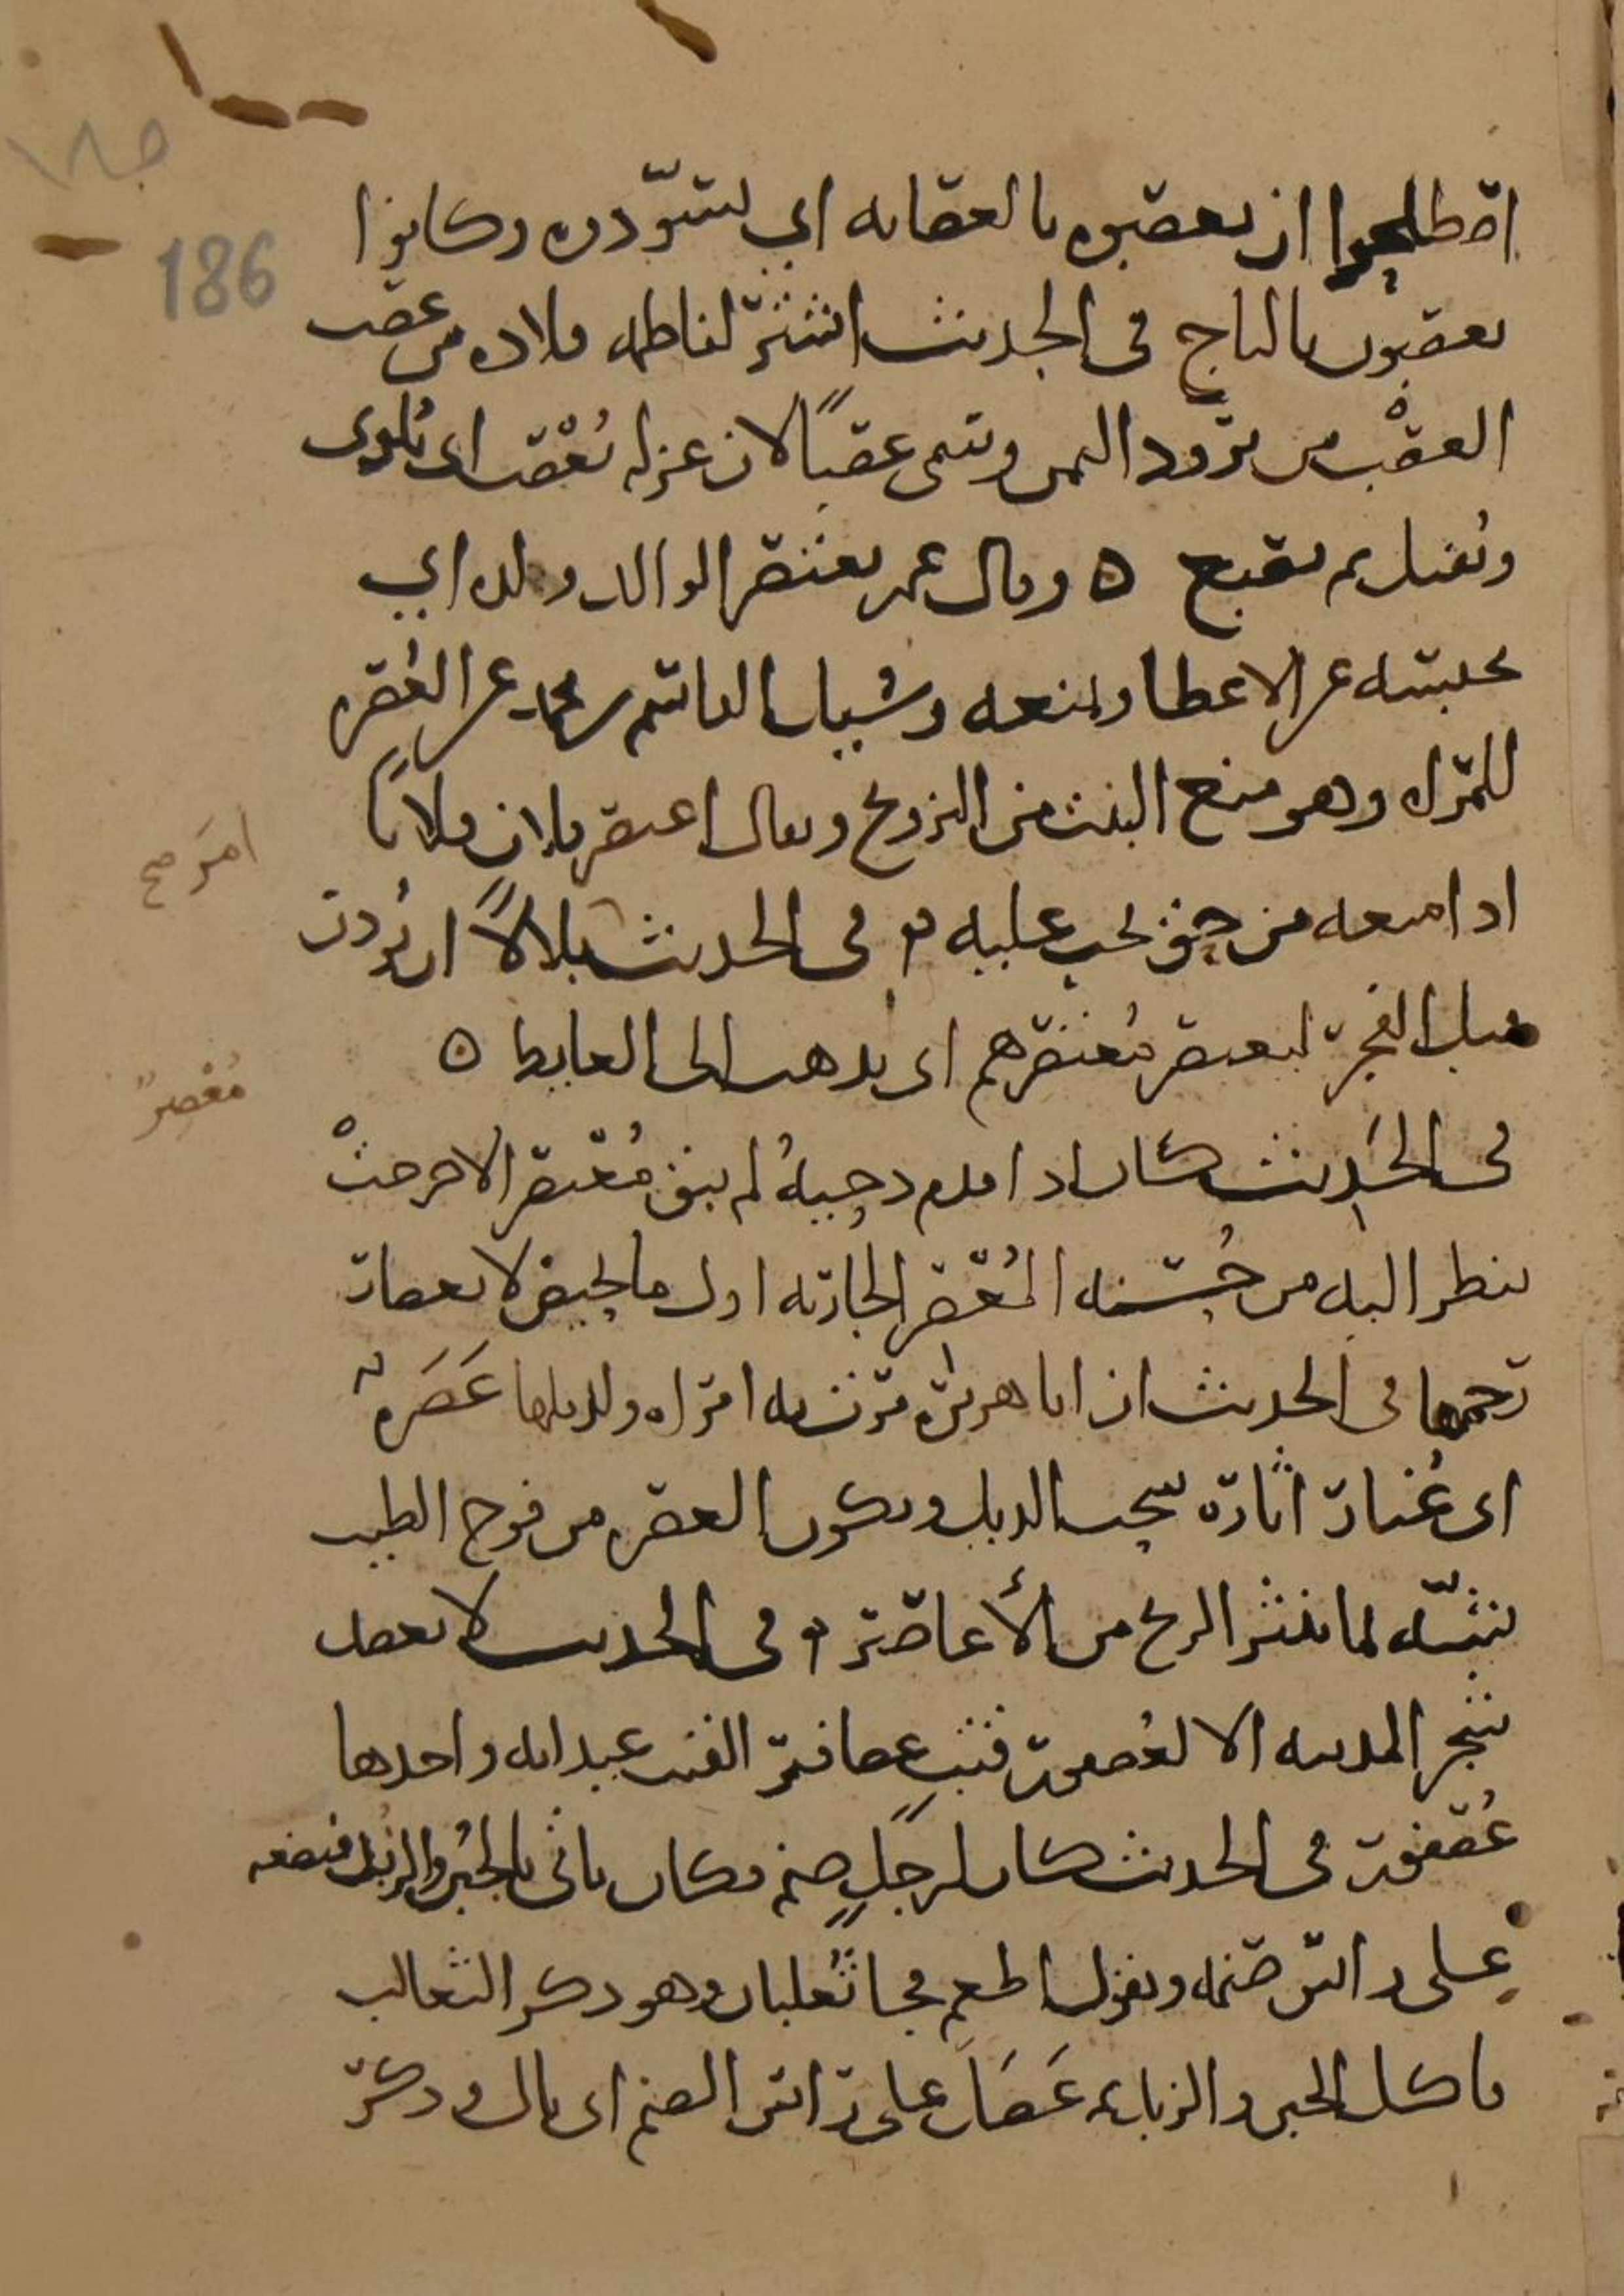 186
اصطلحوا ان يعصبوه بالعصابه اي يسوّدوه وكانوا
يعصبون بالتاج في الحديث اشتر لفاطمه قلاده من عصب
العصْب من برود اليمن وسمي عصبًا لان غزله يُعْصب اي يُلوى
ويفتل ثم يصبغ ه وقال عمر يعتصر الوالد ولده اي
يحبسه عن الاعطا ويمنعه وسئل القاسم بن محمد عن العُصره
للمراه وهو منع البنت من التزويج ويقال اعتصر فلان فلانًا
اذا منعه من حق يجب عليه في الحديث بلالاً ان يُوذن
امرَ صح
قبل الفجر ليعتصر مُعتصرهم اي يذهب الى الغايط ه
مُعْصرٌ
في الحَديث كان اذا قدم دحيهُ لم يبق مُعْصر الا خرجتْ
ينظر اليه من حُسنه المُعْصر الجاريه اول ما تحيض لانعصار
رحمها في الحديث ان ابا هريره مرت به امراه ولذيلها عَصَره
اي غُبار اثاره سحب الذيل ويكون العصره من فوح الطيب
شبّهه لما تثير الريح من الأعاصير في الحديث لا يعضد
شجر المدينه الا لعُصفور قتبٍ عصافير القتب عيدانه واحدها
عُصفور في الحديث كان لرجلٍ صنم فكان ياتي بالجُبن والزُبد فيضعه
على راس صنمه ويقول اطعم فجا ثُعلبان وهو ذكر الثعالب
فاكل الجبن والزبد ثم عَصَلَ على راس الصنم اي بال وذكر